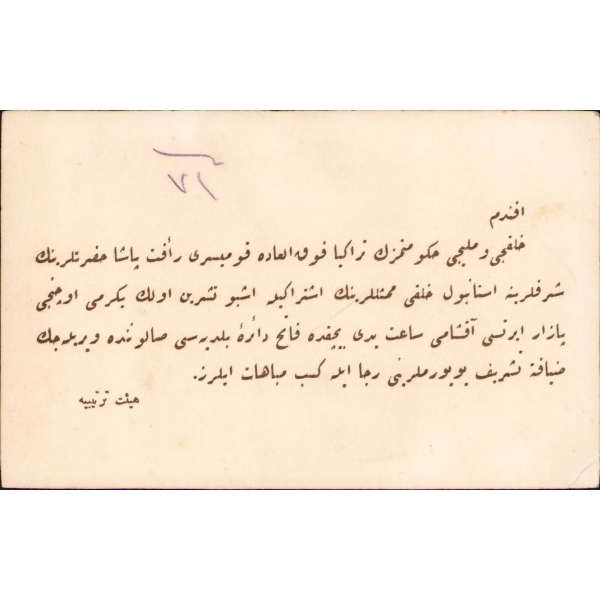 ٧١
افندم
خلقجی و ملیجی حكومتمزك تراكیا فوق العاده قومیسری رأفت پاشا حضرتلرینك
شرفلرینه استانبول خلقی ممثللرینك اشتراكیله اشبو تشرین اولك یكرمی اوچنجی
پازار ایرتسی آقشامی ساعت یدی بچقده فاتح دائرهٔ بلدیه سی صالوننده ویریله جك
ضیافته تشریف بویورملرینی رجا ایله كسب مباهات ایلرز.
هیئت ترتیبیه